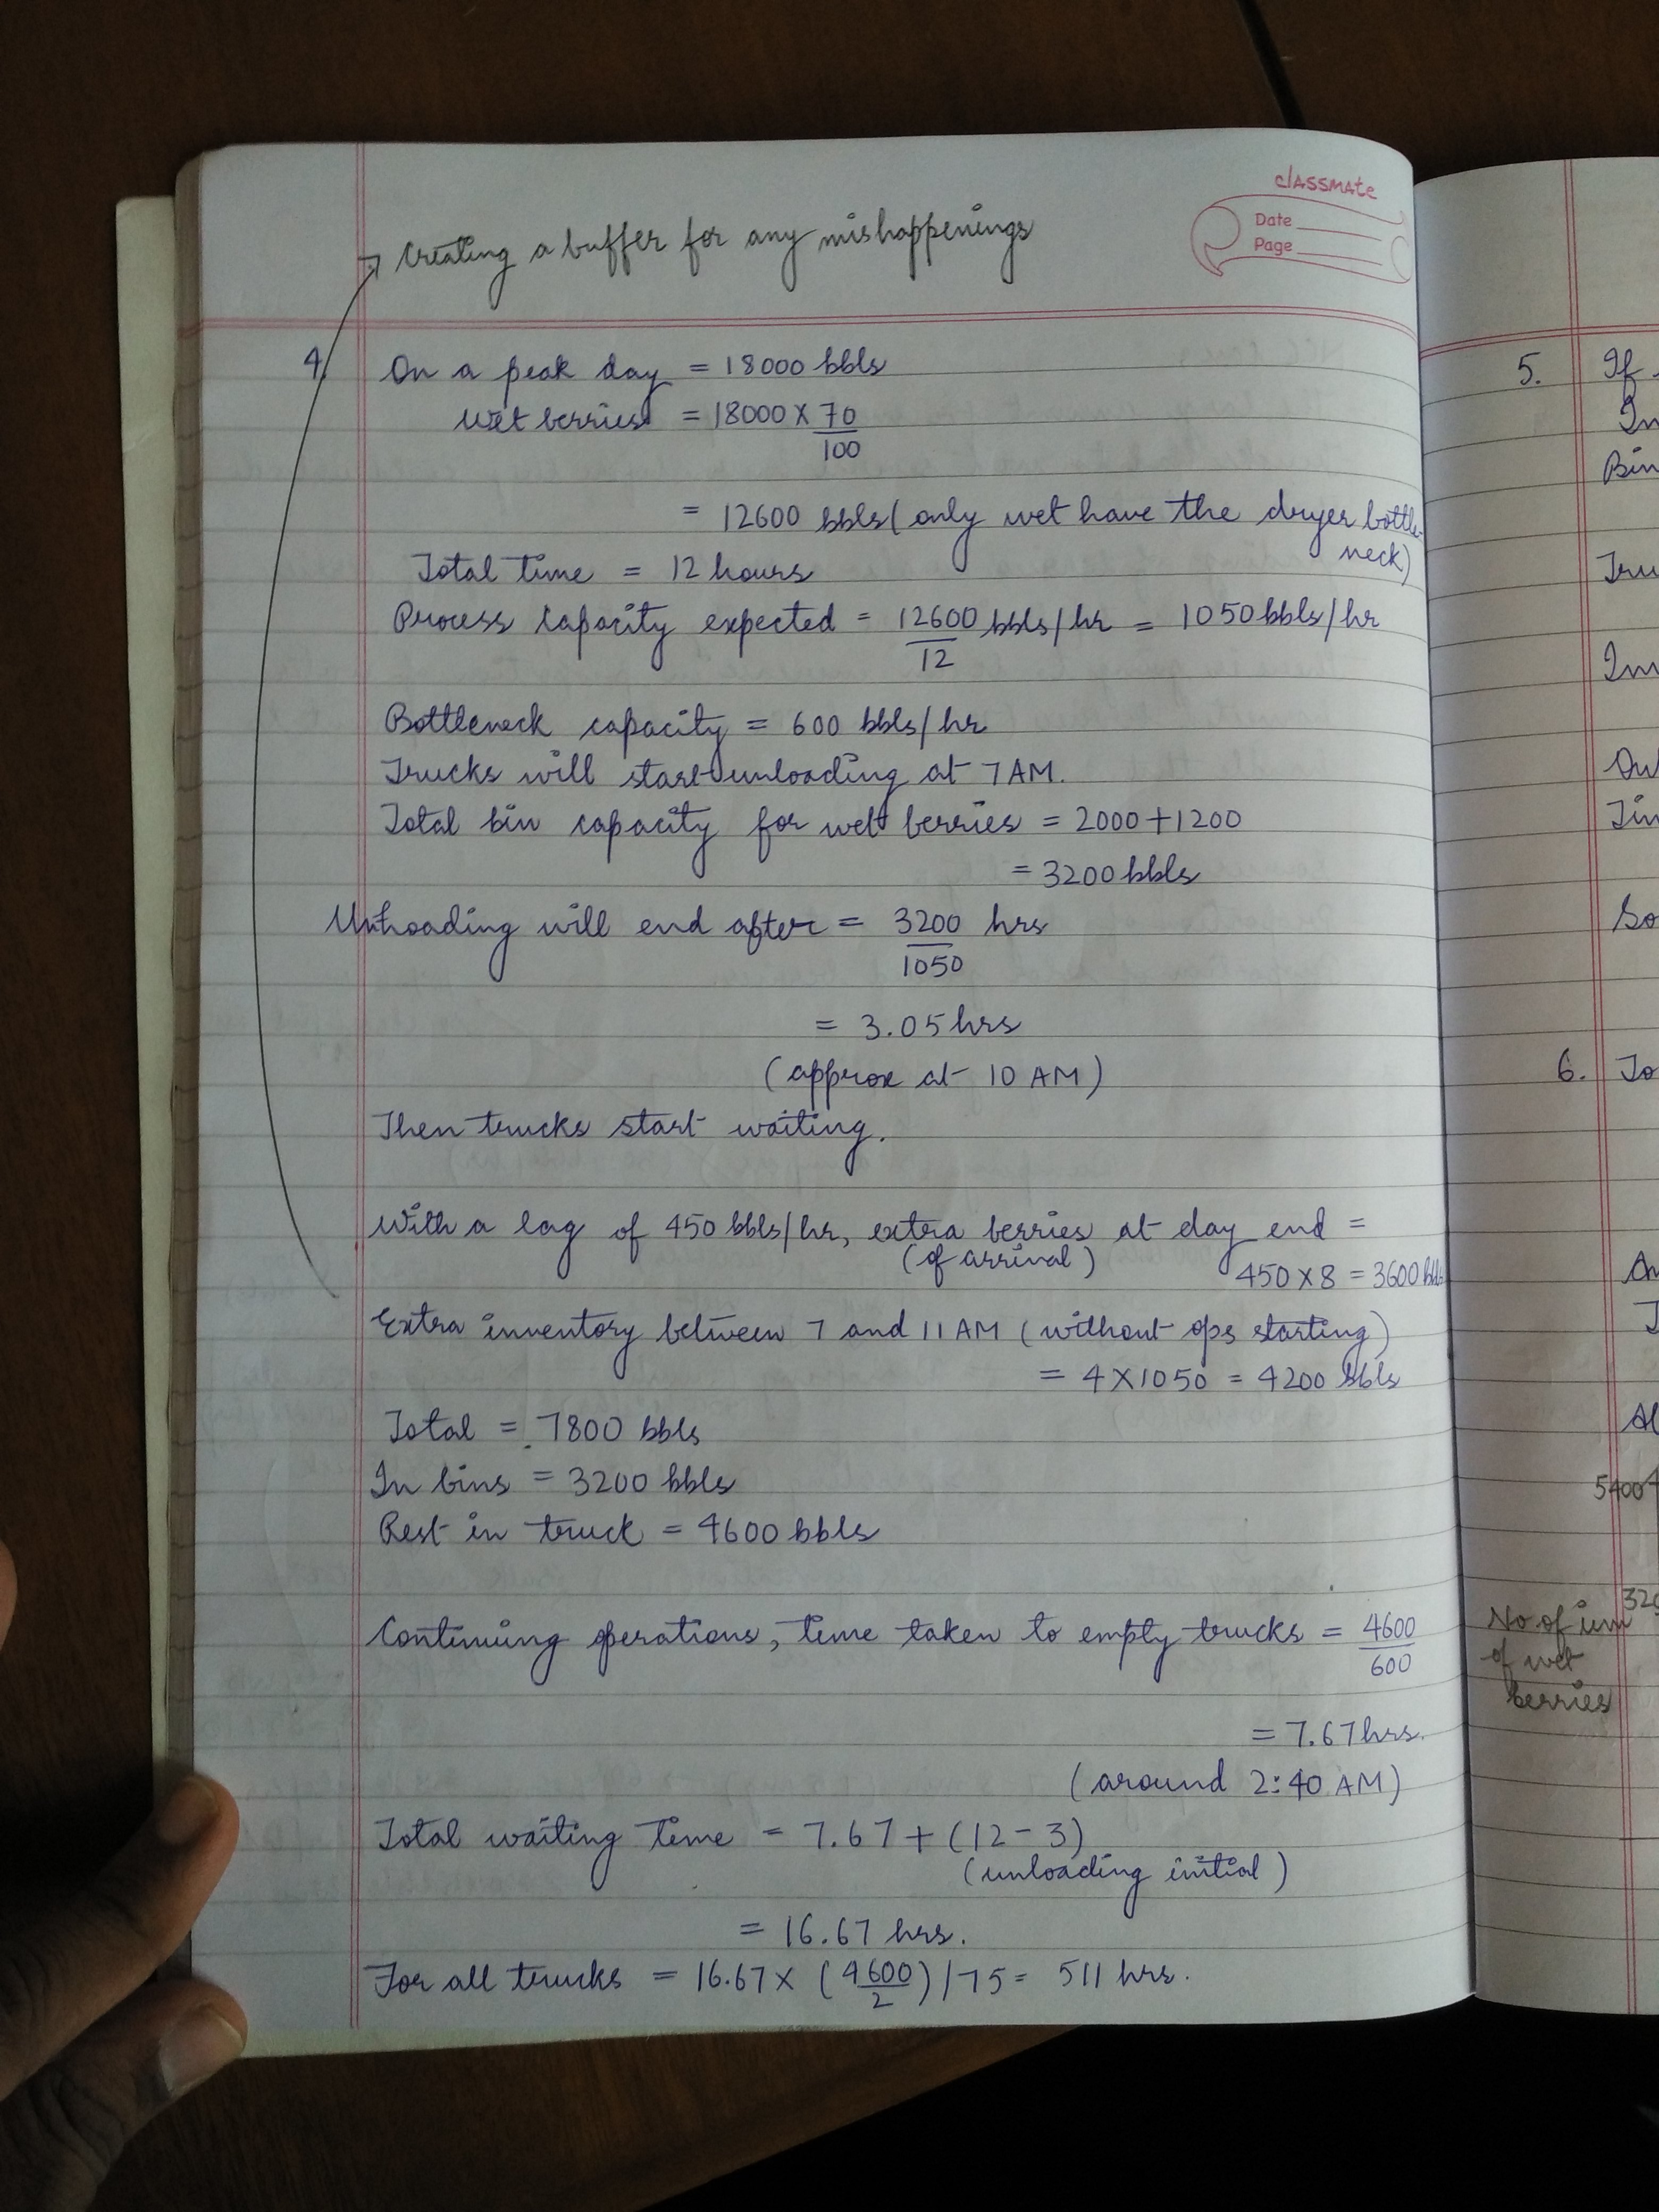 classmate
Date
Page
→ Creating a buffer for any mishappenings
4. On a peak day = 18000 bbls
Wet berries = 18000 × 70/100
= 12600 bbls (only wet have the dryer bottle-
neck)
Total time = 12 hours
Process capacity expected = 12600/12 bbls/hr = 1050 bbls/hr
Bottleneck capacity = 600 bbls/hr
Trucks will start unloading at 7 AM.
Total bin capacity for wet berries = 2000 + 1200
= 3200 bbls
Unloading will end after = 3200/1050 hrs
= 3.05 hrs
(approx at 10 AM)
Then trucks start waiting.
With a lag of 450 bbls/hr, extra berries at day end =
(of arrival) 450 × 8 = 3600 bbls
Extra inventory between 7 and 11 AM (without ops starting)
= 4 × 1050 = 4200 bbls
Total = 7800 bbls
In bins = 3200 bbls
Rest in truck = 4600 bbls
Continuing operations, time taken to empty trucks = 4600/600
= 7.67 hrs.
(around 2:40 AM)
Total waiting time = 7.67 + (12 - 3)
(unloading initial)
= 16.67 hrs.
For all trucks = 16.67 × (4600/2) / 75 = 511 hrs.
5. If
Bin
6. To
5400
No of
of wet
berries